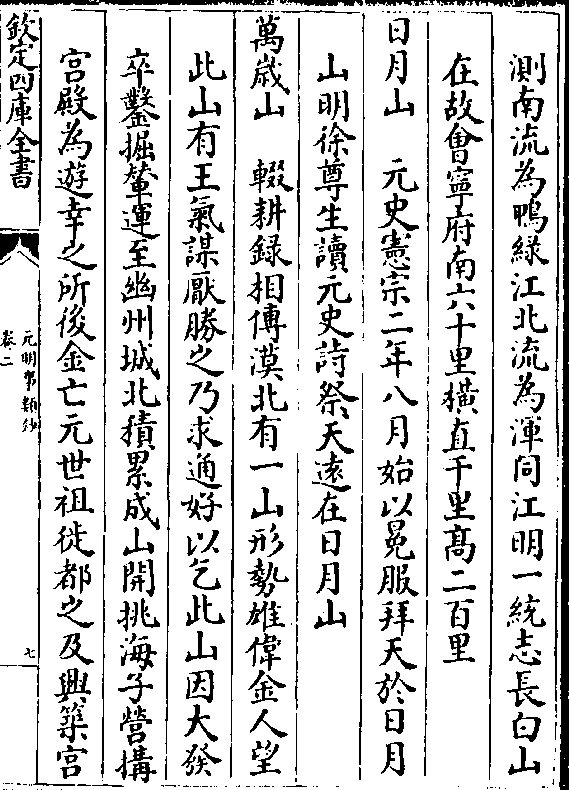 測南流為鴨緑江北流為渾同江明一統志長白山
在故㑹寧府南六十里横直千里髙二百里
日月山　元史憲宗二年八月始以冕服拜天於日月
山明徐尊生讀元史詩祭天遠在日月山
萬歳山　輟耕録相傳漠北有一山形勢雄偉金人望
此山有王氣謀厭勝之乃求通好以乞此山因大發
卒鑿掘輦運至幽州城北積累成山開挑海子營搆
宫殿為遊幸之所後金亡元世祖徙都之及興築宫
欽定四庫全書
元明事類鈔
卷二
七